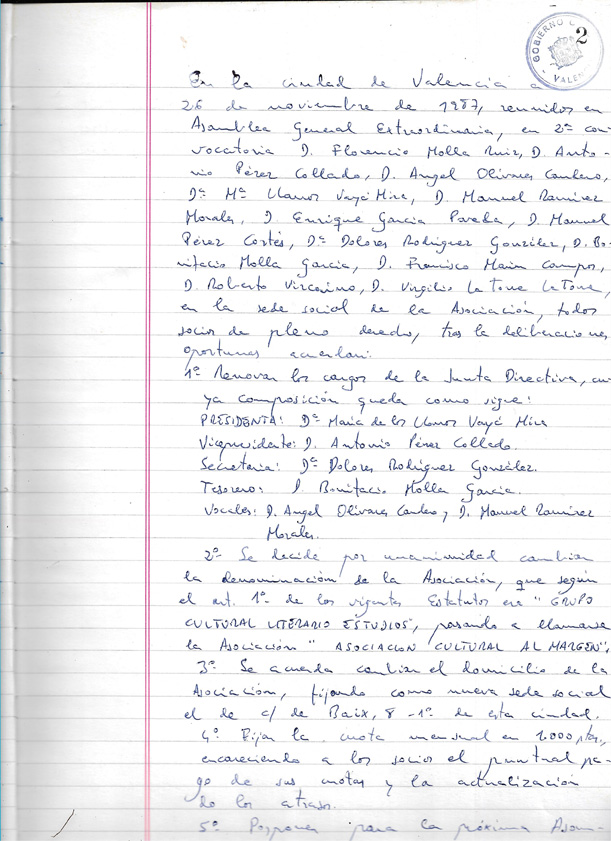 GOBIERNO
VALEN
2
En la ciudad de Valencia a
26 de noviembre de 1987, reunidos en
Asamblea General Extraordinaria, en 2ª con
vocatoria D. Florencio Molla Ruiz, D. Anto-
nio Pérez Collado, D. Angel Olivares
Dª Mª Llanos Vayá Mira, D. Manuel Ramírez
Morales, D Enrique Garcia D. Manuel
Pérez Cortés, Dª Dolores Rodríguez González, D. Bo-
nifacio Molla Garcia, D. Francisco Marin Campos,
D. Roberto D. Virgilio La Torre La Torre,
en la sede social de la Asociación, todos
socios de pleno derecho, tras la deliberaciones
oportunas acuerdan:
1º Renovar los cargos de la Junta Directiva, cu
ya composición queda como sigue:
PRESIDENTA: Dª Maria de los Llanos Vayá Mira
Vicepresidente: D. Antonio Pérez Collado.
Secretaria: Dª Dolores Rodríguez González.
Tesorero: D. Bonifacio Molla Garcia.
Vocales: D. Angel Olivares y D. Manuel Ramírez
Morales.
2º- Se decide por unanimidad cambiar
la denominación de la Asociación, que según
el art. 1º de los vigentes Estatutos era "GRUPO
CULTURAL LITERARIO ESTUDIOS", pasando a llamarse
la Asociación "ASOCIACION CULTURAL AL MARGEN";
3º- Se acuerda cambiar el domicilio de la
Asociación, fijando como nueva sede social
el de c/ de Baix, 8 - 1º de esta ciudad.
4º- Fijar la cuota mensual en 1.000 ptas,
encareciendo a los socios el puntual pa-
go de sus cuotas y la actualización
de los atrasos.
5º- Posponer para la próxima Asam-